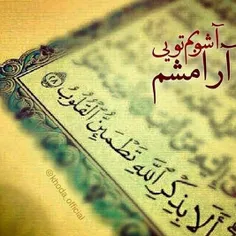 آشوبم تویی
آرامشم
أَلَا بِذِكْرِ اللَّهِ تَطْمَئِنُّ الْقُلُوبُ ﴿٢٨﴾
@khoda_official